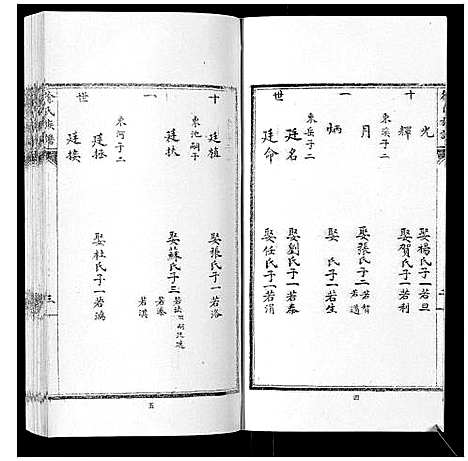 十一世
光 娶楊氏子一若旦
輝 娶賀氏子一若利
東岳子二
月 娶張氏子二若智 若道
炳 娶 氏子一若生
東岳子二
廷名 娶劉氏子一若泰
廷命 娶任氏子一若涓
四
十一世
廷植 娶張氏子一若洛
東池嗣子
廷扶 娶蘇氏子三 若淇
東河子二
廷拯 娶杜氏子一若漓
廷揆
徐氏族譜
三
五